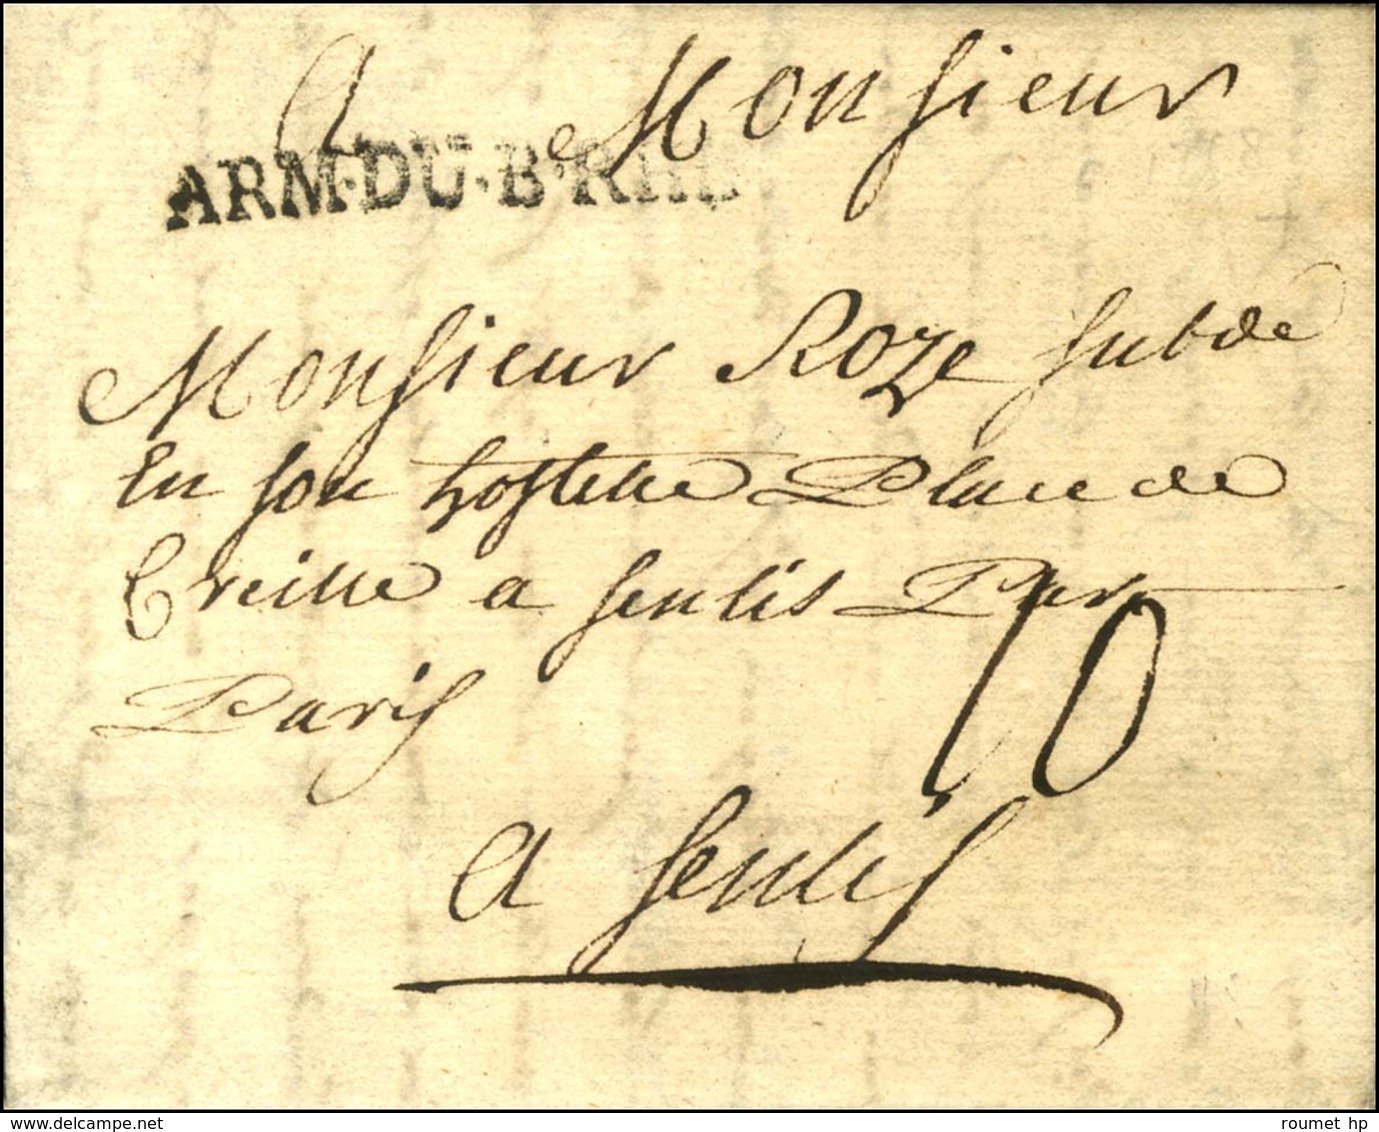 A Monsieur
ARM·DU·B·RHI
Monsieur Roze subde
En son hostelle Place de
Creille a senlis Par
Paris
10
a senlis
www.delcampe.net
roumet hp